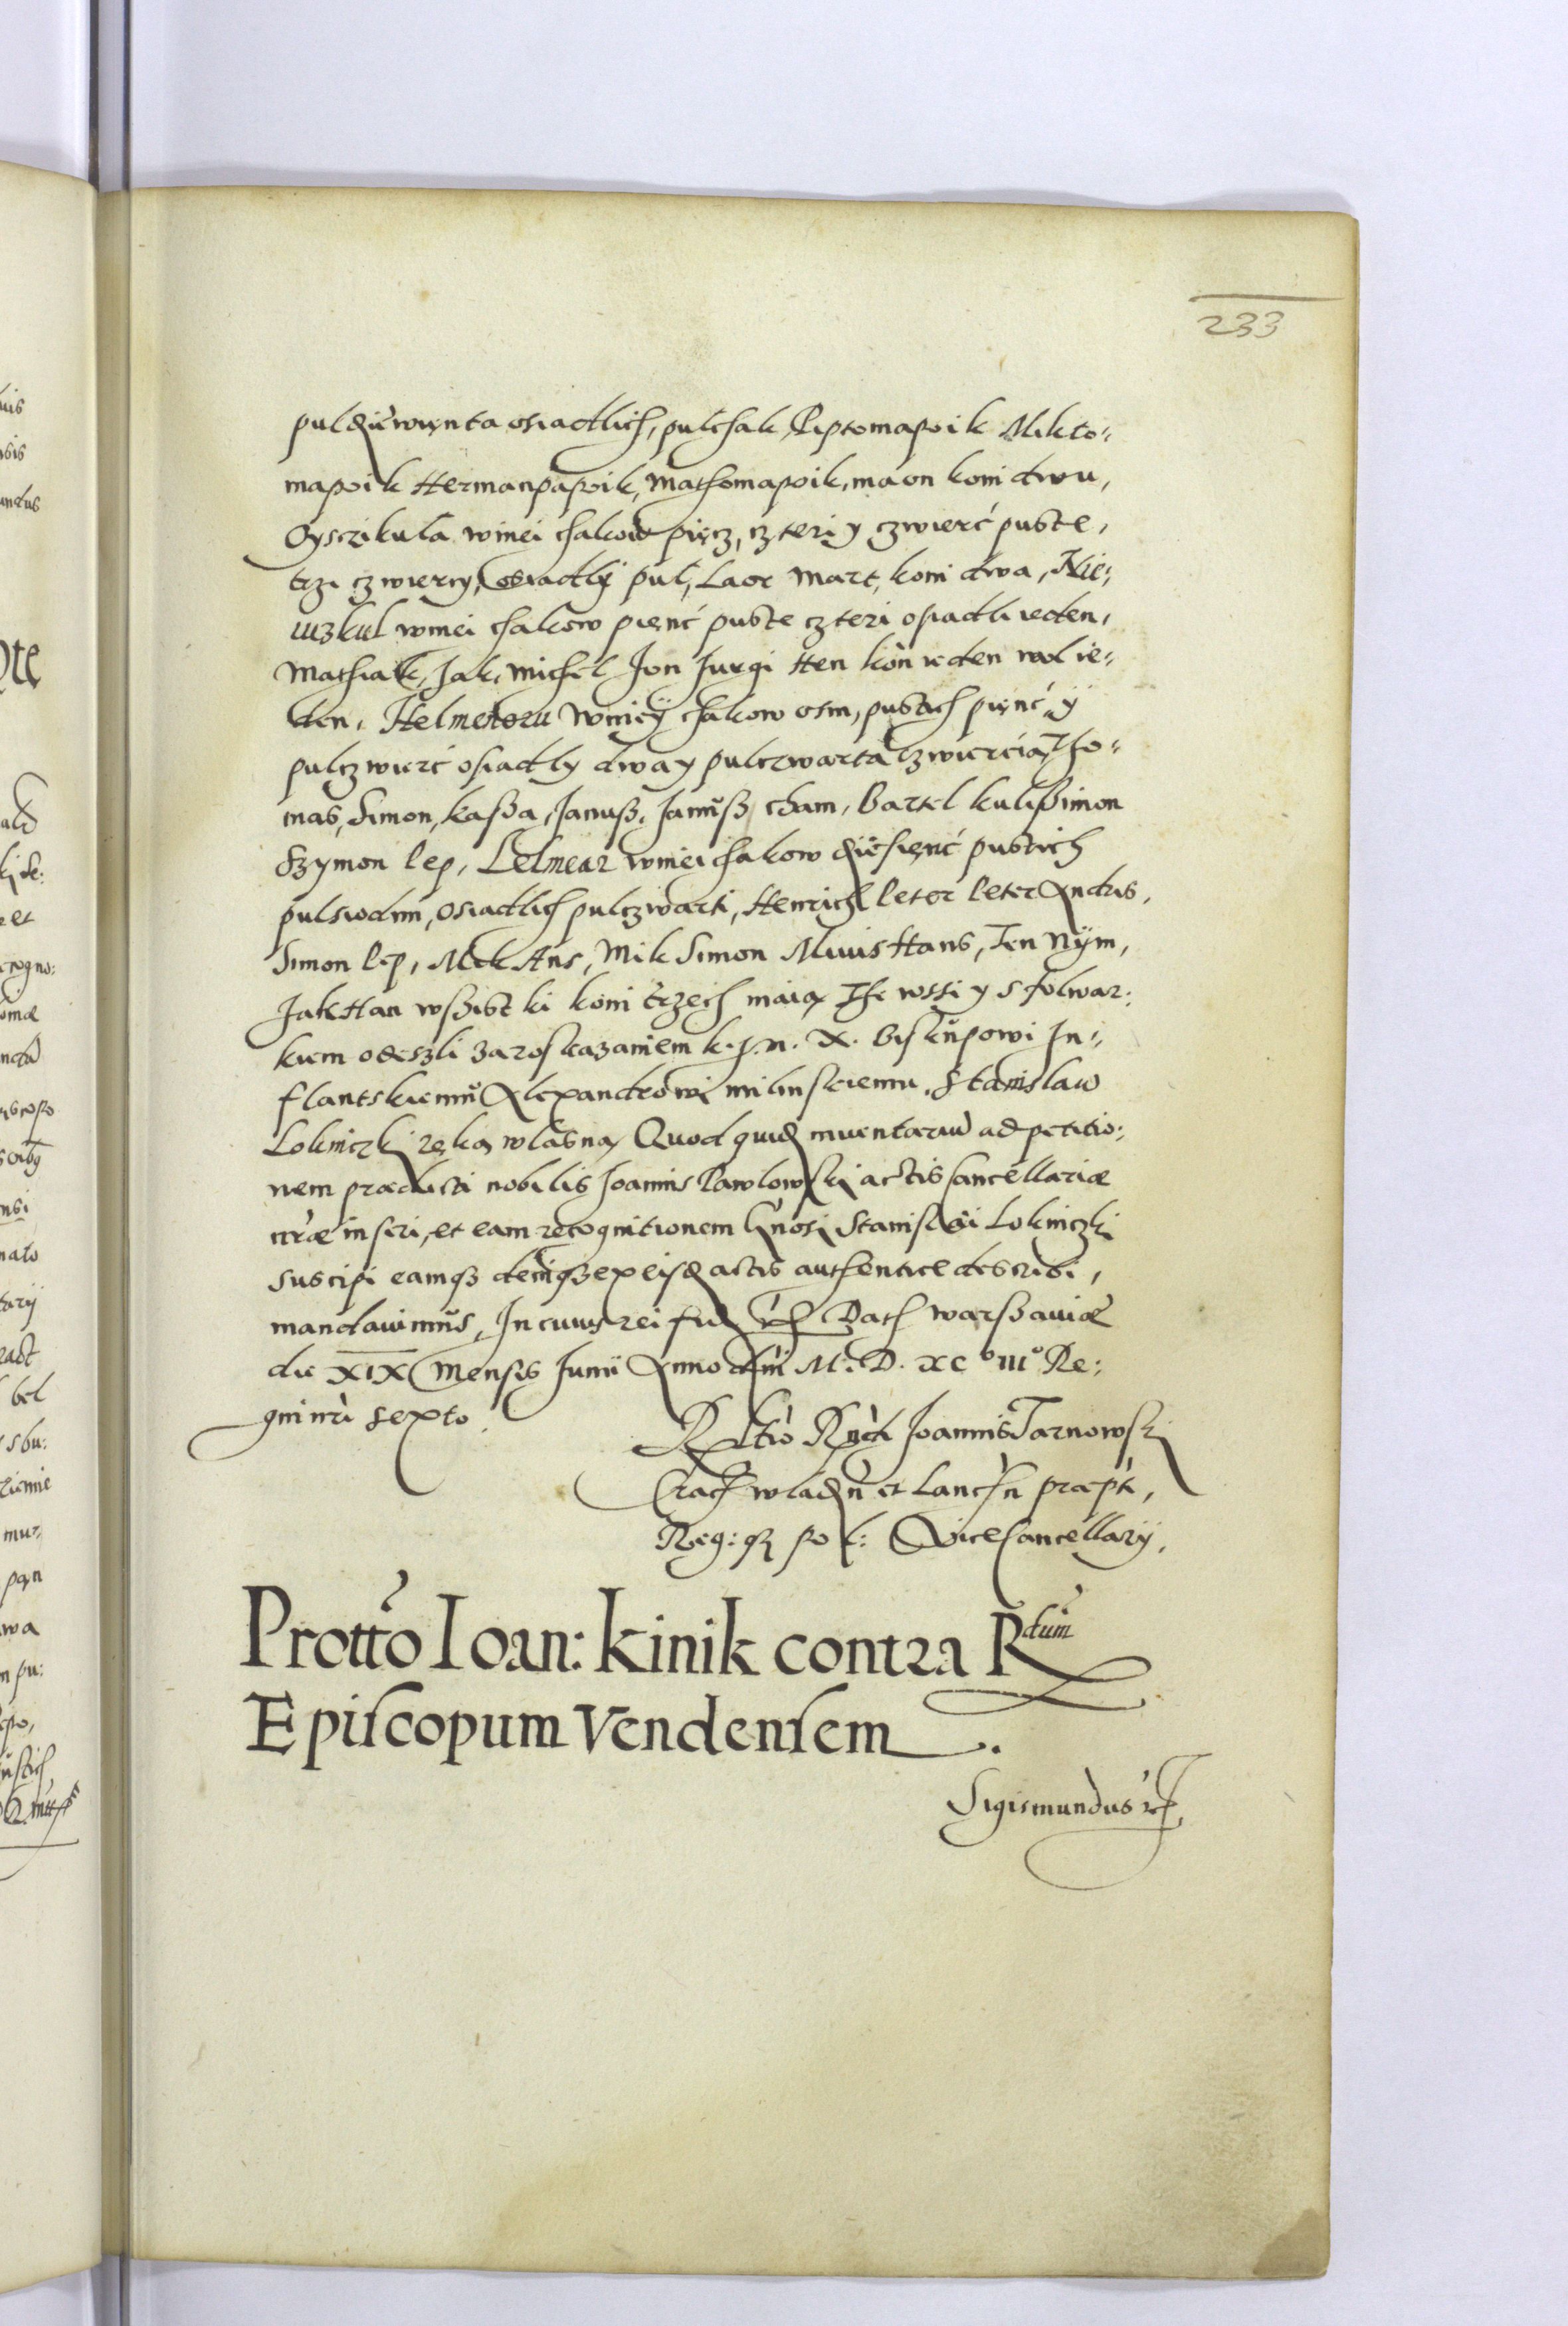 233
puldziewięnta osiadlich, pulchak Piptomapoik Mikto:
mapoik Hermanpapoik, Mathomapoik, ma on koni dwu,
Oyscikula wniei chakow pięcz, czteri y czwierć puste,
trzi czwiercy, osiadly pul, Laoc Mart, koni dwa, Nie:
iuzkul wniei chakow pięnć puste czteri osiadli ieden,
Mathiak, Jak, Michel Jon Jurgi Hen kon ieden wol ie:
den, Helmetozu Wnieÿ chakow osm, pustich pięnć y
pulczwierć osiadly dwa y pulczwarta czwiercią, Tho:
mas, Simon, kassa, Janusz, Janusz cham, Bartel kulissimon
Szymon lep, Lelmear wniei chakow dziesięnć pustich
pulsiodmi, osiadlich pulczwarti, Henrich leter leter Andris,
Simon lep, Mek Ans, Mik Simon Miuis Hans, Jen Nÿm,
Jak Han wszist ki koni trzech maią The wssi y s folwar:
kiem odeszli zaroskazaniem k. j. n. X. biskupowi In:
flantskiemu Alexandrowi milinskiemu. Stanislaw
Lokniczki ręką wlasną Quod quid inuentarium ad petitio:
nem prædicti nobilis Joannis Pawlowski actis Cancellariæ
nræ inseri, et eam recognitionem Gnosi Stanislai Lokniczki
suscipi eamqz deniqz ex eisd actis authentice describi,
mandauimus, In cuius rei fid etc Dat Warssauiæ
die XIX Mensis Junii Anno dni M. D. XC IIIº Re:
gni nri sexto
Rltio Rndi Joannis Tarnowski
Crac wladn et Lancn præpti,
Reg: qz pol: Vicecancellarij,
Prottõ Ioan: Kinik contra Rdum
Episcopum Vendensem.
Sigismundus etc